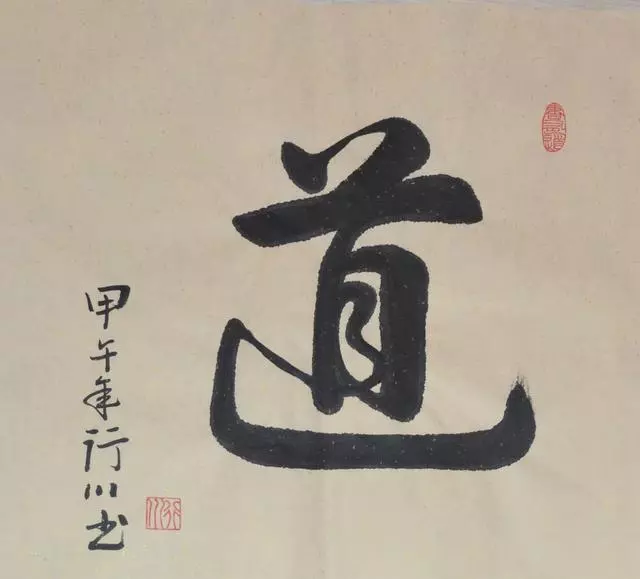 道
甲午年行川书